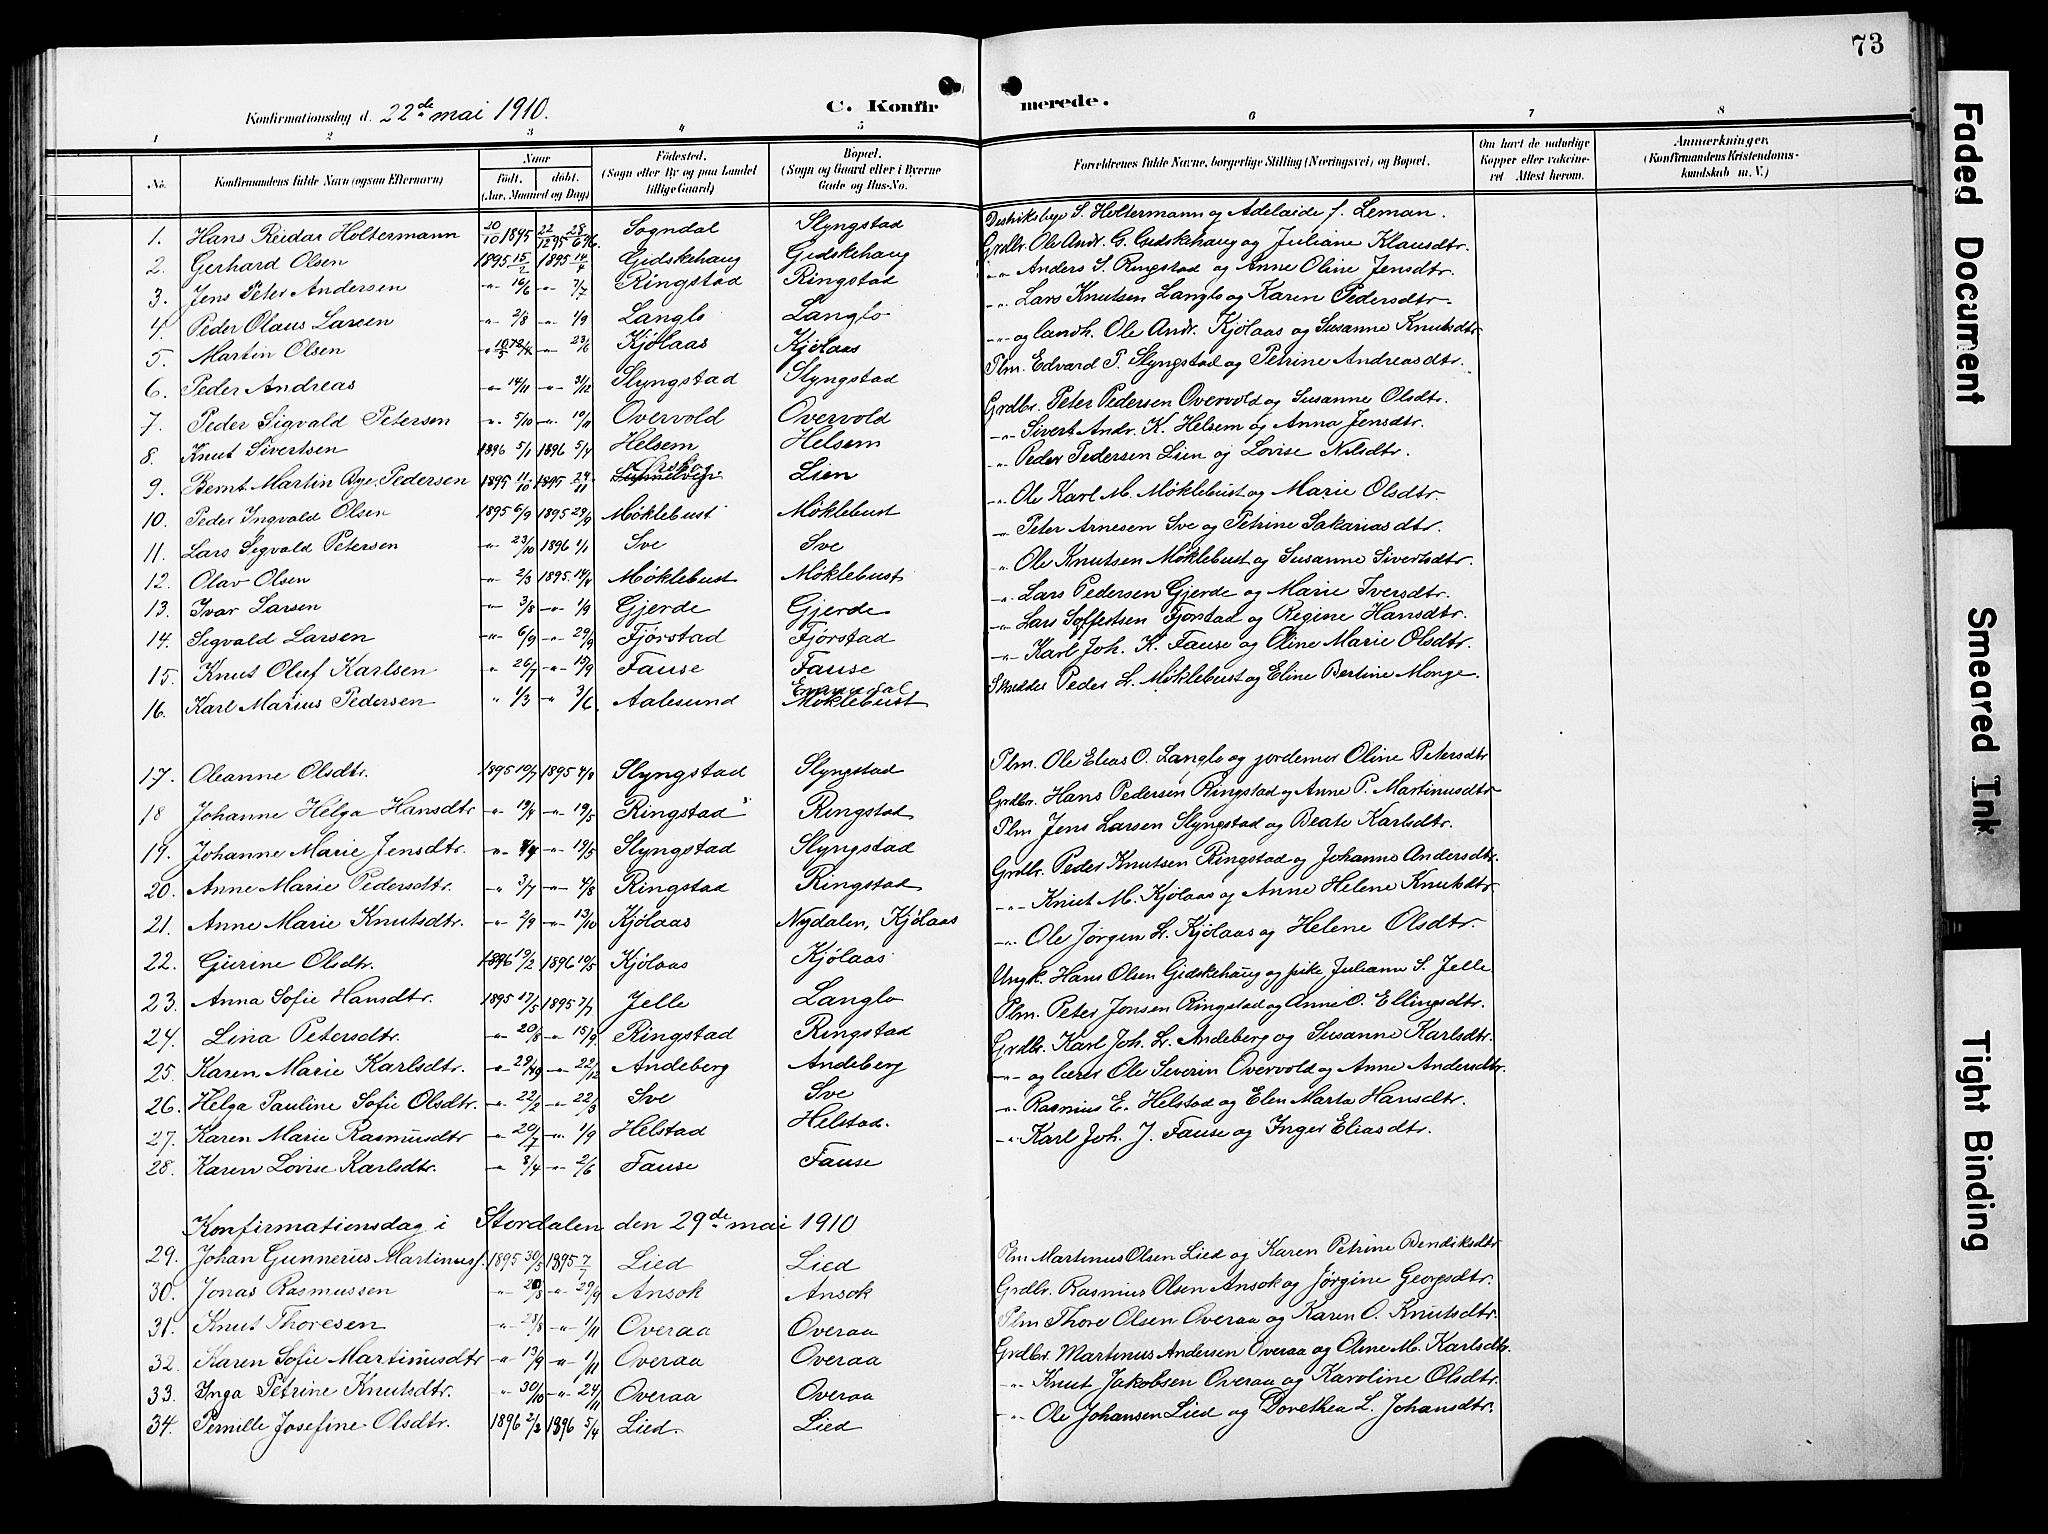 73
Konfirmationsdag d. 22de mai 1910.
C. Konfirmerede.
1 2 3 4 5 6 7 8
No. Konfirmandens fulde Navn (ogsaa Efternavn) Naar født. døbt. (Aar, Maaned og Dag) Fødested. (Sogn eller By og paa Landet tillige Gaard) Bopæl. (Sogn og Gaard eller i Byerne Gade og Hus-No. Forældrenes fulde Navne, borgerlige Stilling (Næringsvei) og Bopæl. Om havt de naturlige Kopper eller vakcineret. Attest herom. Anmærkninger. (Konfirmandens Kristendomskundskab m. V.)
1. Hans Reidar Holtermann 20/10 1895 22/12 95 28/6 96. Sogndal Slyngstad S. Holtermann og Adelaide f. Leman.
2. Gerhard Olsen 1895 15/2 1895 14/4 Gidskehaug Gidskehaug Grdbr. Ole Andr. G. Gidskehaug og Juliane Klausdtr.
3. Jens Peter Andersen -"- 16/6 -"- 7/7 Ringstad Ringstad -"- Anders S. Ringstad og Anne Oline Jensdtr.
4. Peder Olaus Larsen -"- 2/8 -"- 1/9 Langlo Langlo -"- Lars Knutsen Langlo og Karen Pedersdtr.
5. Martin Olsen -"- 23/6 Kjølaas Kjølaas -"- og landh. Ole Andr. Kjølaas og Susanne Knutsdtr.
6. Peder Andreas -"- 14/11 -"- 31/12 Slyngstad Slyngstad Plm. Edvard P. Slyngstad og Petrine Andreasdtr.
7. Peder Sigvald Petersen -"- 5/10 -"- 10/11 Overvold Overvold Grdbr. Peter Pedersen Overvold og Susanne Olsdtr.
8. Knut Sivertsen 1896 5/1 1896 5/4 Helsem Helsem -"- Sivert Andr. K. Helsem og Anna Jensdtr.
9. Bernt Martin Bye Pedersen 1895 11/10 1895 24/11 Lien -"- Peder Pedersen Lien og Lovise Nilsdtr.
10. Peder Ingvald Olsen 1895 6/9 1895 29/9 Møklebust Møklebust -"- Ole Karl M. Møklebust og Marie Olsdtr.
11. Lars Sigvald Petersen -"- 23/10 1896 1/1 Sve Sve -"- Peter Arnesen Sve og Petrine Sakariasdtr.
12. Olav Olsen -"- 2/3 1895. 14/4 Møklebust Møklebust -"- Ole Knutsen Møklebust og Susanne Sivertsdtr.
13. Ivar Larsen -"- 3/8 -"- 1/9 Gjerde Gjerde -"- Lars Pedersen Gjerde og Marie Iversdtr.
14. Sigvald Larsen -"- 6/9 -"- 29/9 Fjørstad Fjørstad -"- Lars Soffertsen Fjørstad og Regine Hansdtr.
15. Knut Oluf Karlsen -"- 26/7 -"- 15/9 Fause Fause -"- Karl Joh. K. Fause og Oline Marie Olsdtr.
16. Karl Marius Pedersen -"- 1/3 -"- 3/6 Aalesund Møklebust Skredder Peder L. Møklebust og Eline Bertine Monge.
17. Oleanne Olsdtr. 1895 10/7 1895 4/8 Slyngstad Slyngstad Plm. Ole Elias O. Langlo og jordemor Oline Petersdtr
18 Johanne Helga Hansdtr -"- 19/4 -"- 19/5 Ringstad Ringstad Grdbr. Hans Pedersen Ringstad og Anne P. Martinusdtr
19. Johanne Marie Jensdtr. -"- -"- 19/5 Slyngstad Slyngstad Plm Jens Larsen Slyngstad og Beate Karlsdtr.
20. Anne Marie Pedersdtr. -"- 3/7 -"- 4/8 Ringstad Ringstad Grdbr. Peder Knutsen Ringstad og Johanne Andersdtr.
21. Anne Marie Knutsdtr. -"- 2/9 -"- 13/10 Kjølaas Nydalen, Kjølaas -"- Knut M. Kjølaas og Anne Helene Knutsdtr
22. Gurine Olsdtr. 1896 19/2 1896 10/5 Kjølaas Kjølaas -"- Ole Jørgen L. Kjølaas og Helene Olsdtr.
23. Anna Sofie Hansdtr. 1895 17/5 1895 7/7 Jelle Langlo Ungk. Hans Olsen Gidskehaug og pike Juliane S. Jelle
24. Lina Petersdtr. -"- 20/8 -"- 15/9 Ringstad Ringstad Plm. Peter Jonsen Ringstad og Anne O. Ellingsdtr.
25. Karen Marie Karlsdtr. -"- -"- 22/12 Andeberg Andeberg Grdbr. Karl Joh. L. Andeberg og Susanne Karlsdtr.
26. Helga Pauline Sofie Olsdtr. -"- 22/2 -"- 22/3 Sve Sve -"- og lærer Ole Severin Overvold og Anne Andersdtr.
27. Karen Marie Rasmusdtr -"- 20/7 -"- 1/9 Helstad Helstad. -"- Rasmus E. Helstad og Elen Marta Hansdtr.
28. Karen Lovise Karlsdtr. -"- 8/4 -"- 2/6 Fause Fause -"- Karl Joh. J. Fause og Inger Eliasdtr.
Konfirmationsdag i Stordalen den 29de mai 1910
29. Johan Gunnerus Martinus f. 1895 30/5 1895 7/7 Lied Lied Plm Martinus Olsen Lied og Karen Petrine Bendiksdtr
30. Jonas Rasmussen -"- 20/8 -"- 29/9 Ansok Ansok Grdbr. Rasmus Olsen Ansok og Jørgine Georgsdtr.
31. Knut Thoresen -"- 23/8 -"- 1/11 Overaa Overaa Plm Thore Olsen Overaa og Karen O. Knutsdtr.
32. Karen Sofie Martinusdtr -"- 13/9 -"- 1/11 Overaa Overaa Grdbr. Martinus Andersen Overaa og Oline M. Karlsdtr.
33. Inga Petrine Knutsdtr. -"- 30/10 -"- 24/11 Overaa Overaa -"- Knut Jakobsen Overaa og Karoline Olsdtr.
34. Pernille Josefine Olsdtr. 1896 2/2 1896 5/4 Lied. Lied -"- Ole Johansen Lied og Dorethea L. Johansdtr.
Faded Document
Smeared Ink
Tight Binding